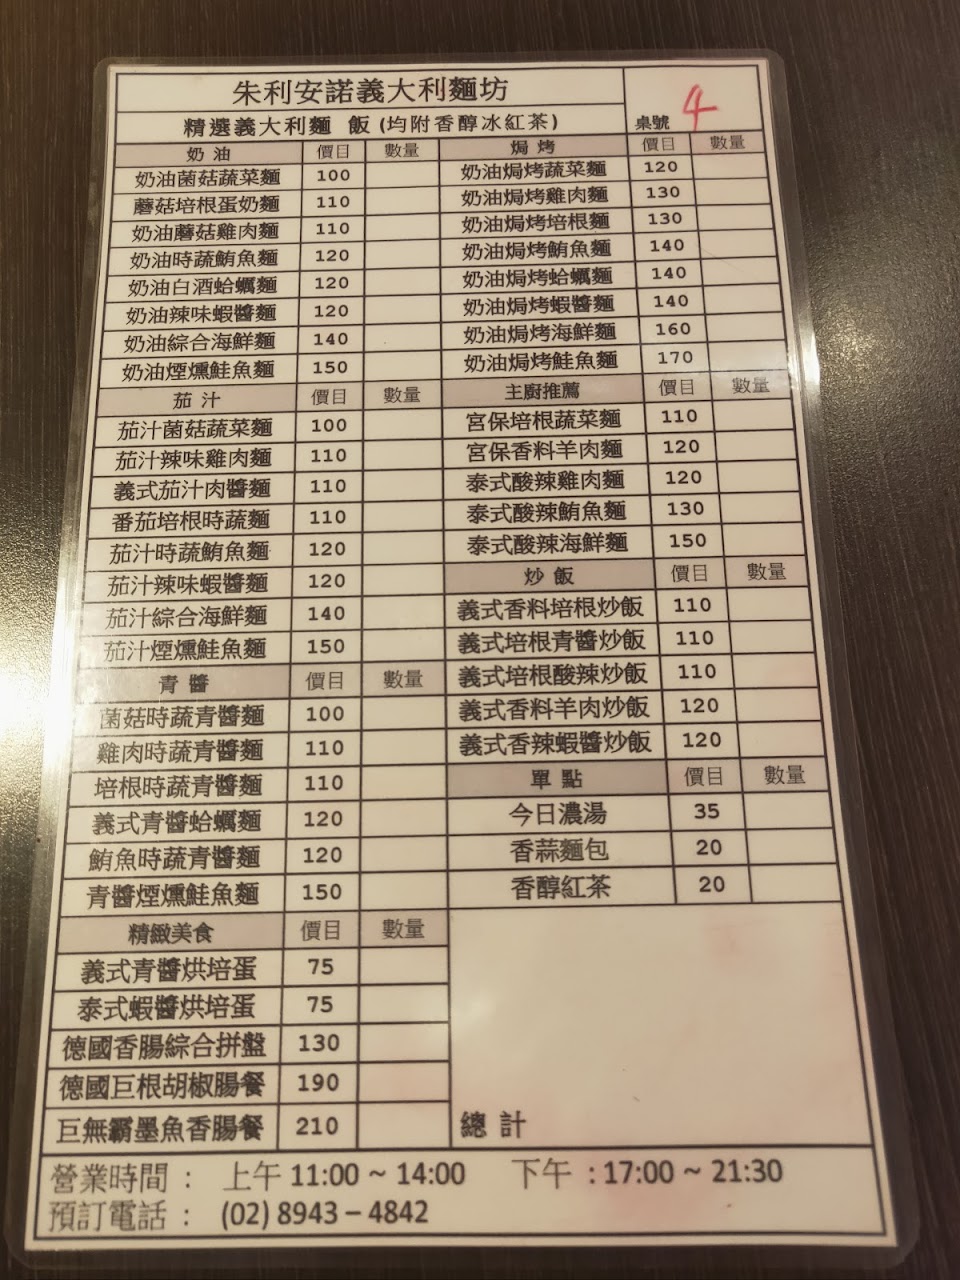 朱利安諾義大利麵坊
精選義大利麵 飯 (均附香醇冰紅茶)
桌號 4
奶油 價目 數量
奶油菌菇蔬菜麵 100
蘑菇培根蛋奶麵 110
奶油蘑菇雞肉麵 110
奶油時蔬鮪魚麵 120
奶油白酒蛤蠣麵 120
奶油辣味蝦醬麵 120
奶油綜合海鮮麵 140
奶油煙燻鮭魚麵 150
茄汁 價目 數量
茄汁菌菇蔬菜麵 100
茄汁辣味雞肉麵 110
義式茄汁肉醬麵 110
番茄培根時蔬麵 110
茄汁時蔬鮪魚麵 120
茄汁辣味蝦醬麵 120
茄汁綜合海鮮麵 140
茄汁煙燻鮭魚麵 150
青醬 價目 數量
菌菇時蔬青醬麵 100
雞肉時蔬青醬麵 110
培根時蔬青醬麵 110
義式青醬蛤蠣麵 120
鮪魚時蔬青醬麵 120
青醬煙燻鮭魚麵 150
精緻美食 價目 數量
義式青醬烘培蛋 75
泰式蝦醬烘培蛋 75
德國香腸綜合拼盤 130
德國巨根胡椒腸餐 190
巨無霸墨魚香腸餐 210
焗烤 價目 數量
奶油焗烤蔬菜麵 120
奶油焗烤雞肉麵 130
奶油焗烤培根麵 130
奶油焗烤鮪魚麵 140
奶油焗烤蛤蠣麵 140
奶油焗烤蝦醬麵 140
奶油焗烤海鮮麵 160
奶油焗烤鮭魚麵 170
主廚推薦 價目 數量
宮保培根蔬菜麵 110
宮保香料羊肉麵 120
泰式酸辣雞肉麵 120
泰式酸辣鮪魚麵 130
泰式酸辣海鮮麵 150
炒飯 價目 數量
義式香料培根炒飯 110
義式培根青醬炒飯 110
義式培根酸辣炒飯 110
義式香料羊肉炒飯 120
義式香辣蝦醬炒飯 120
單點 價目 數量
今日濃湯 35
香蒜麵包 20
香醇紅茶 20
總計
營業時間： 上午 11:00 ~ 14:00 下午 : 17:00 ~ 21:30
預訂電話： (02) 8943 – 4842